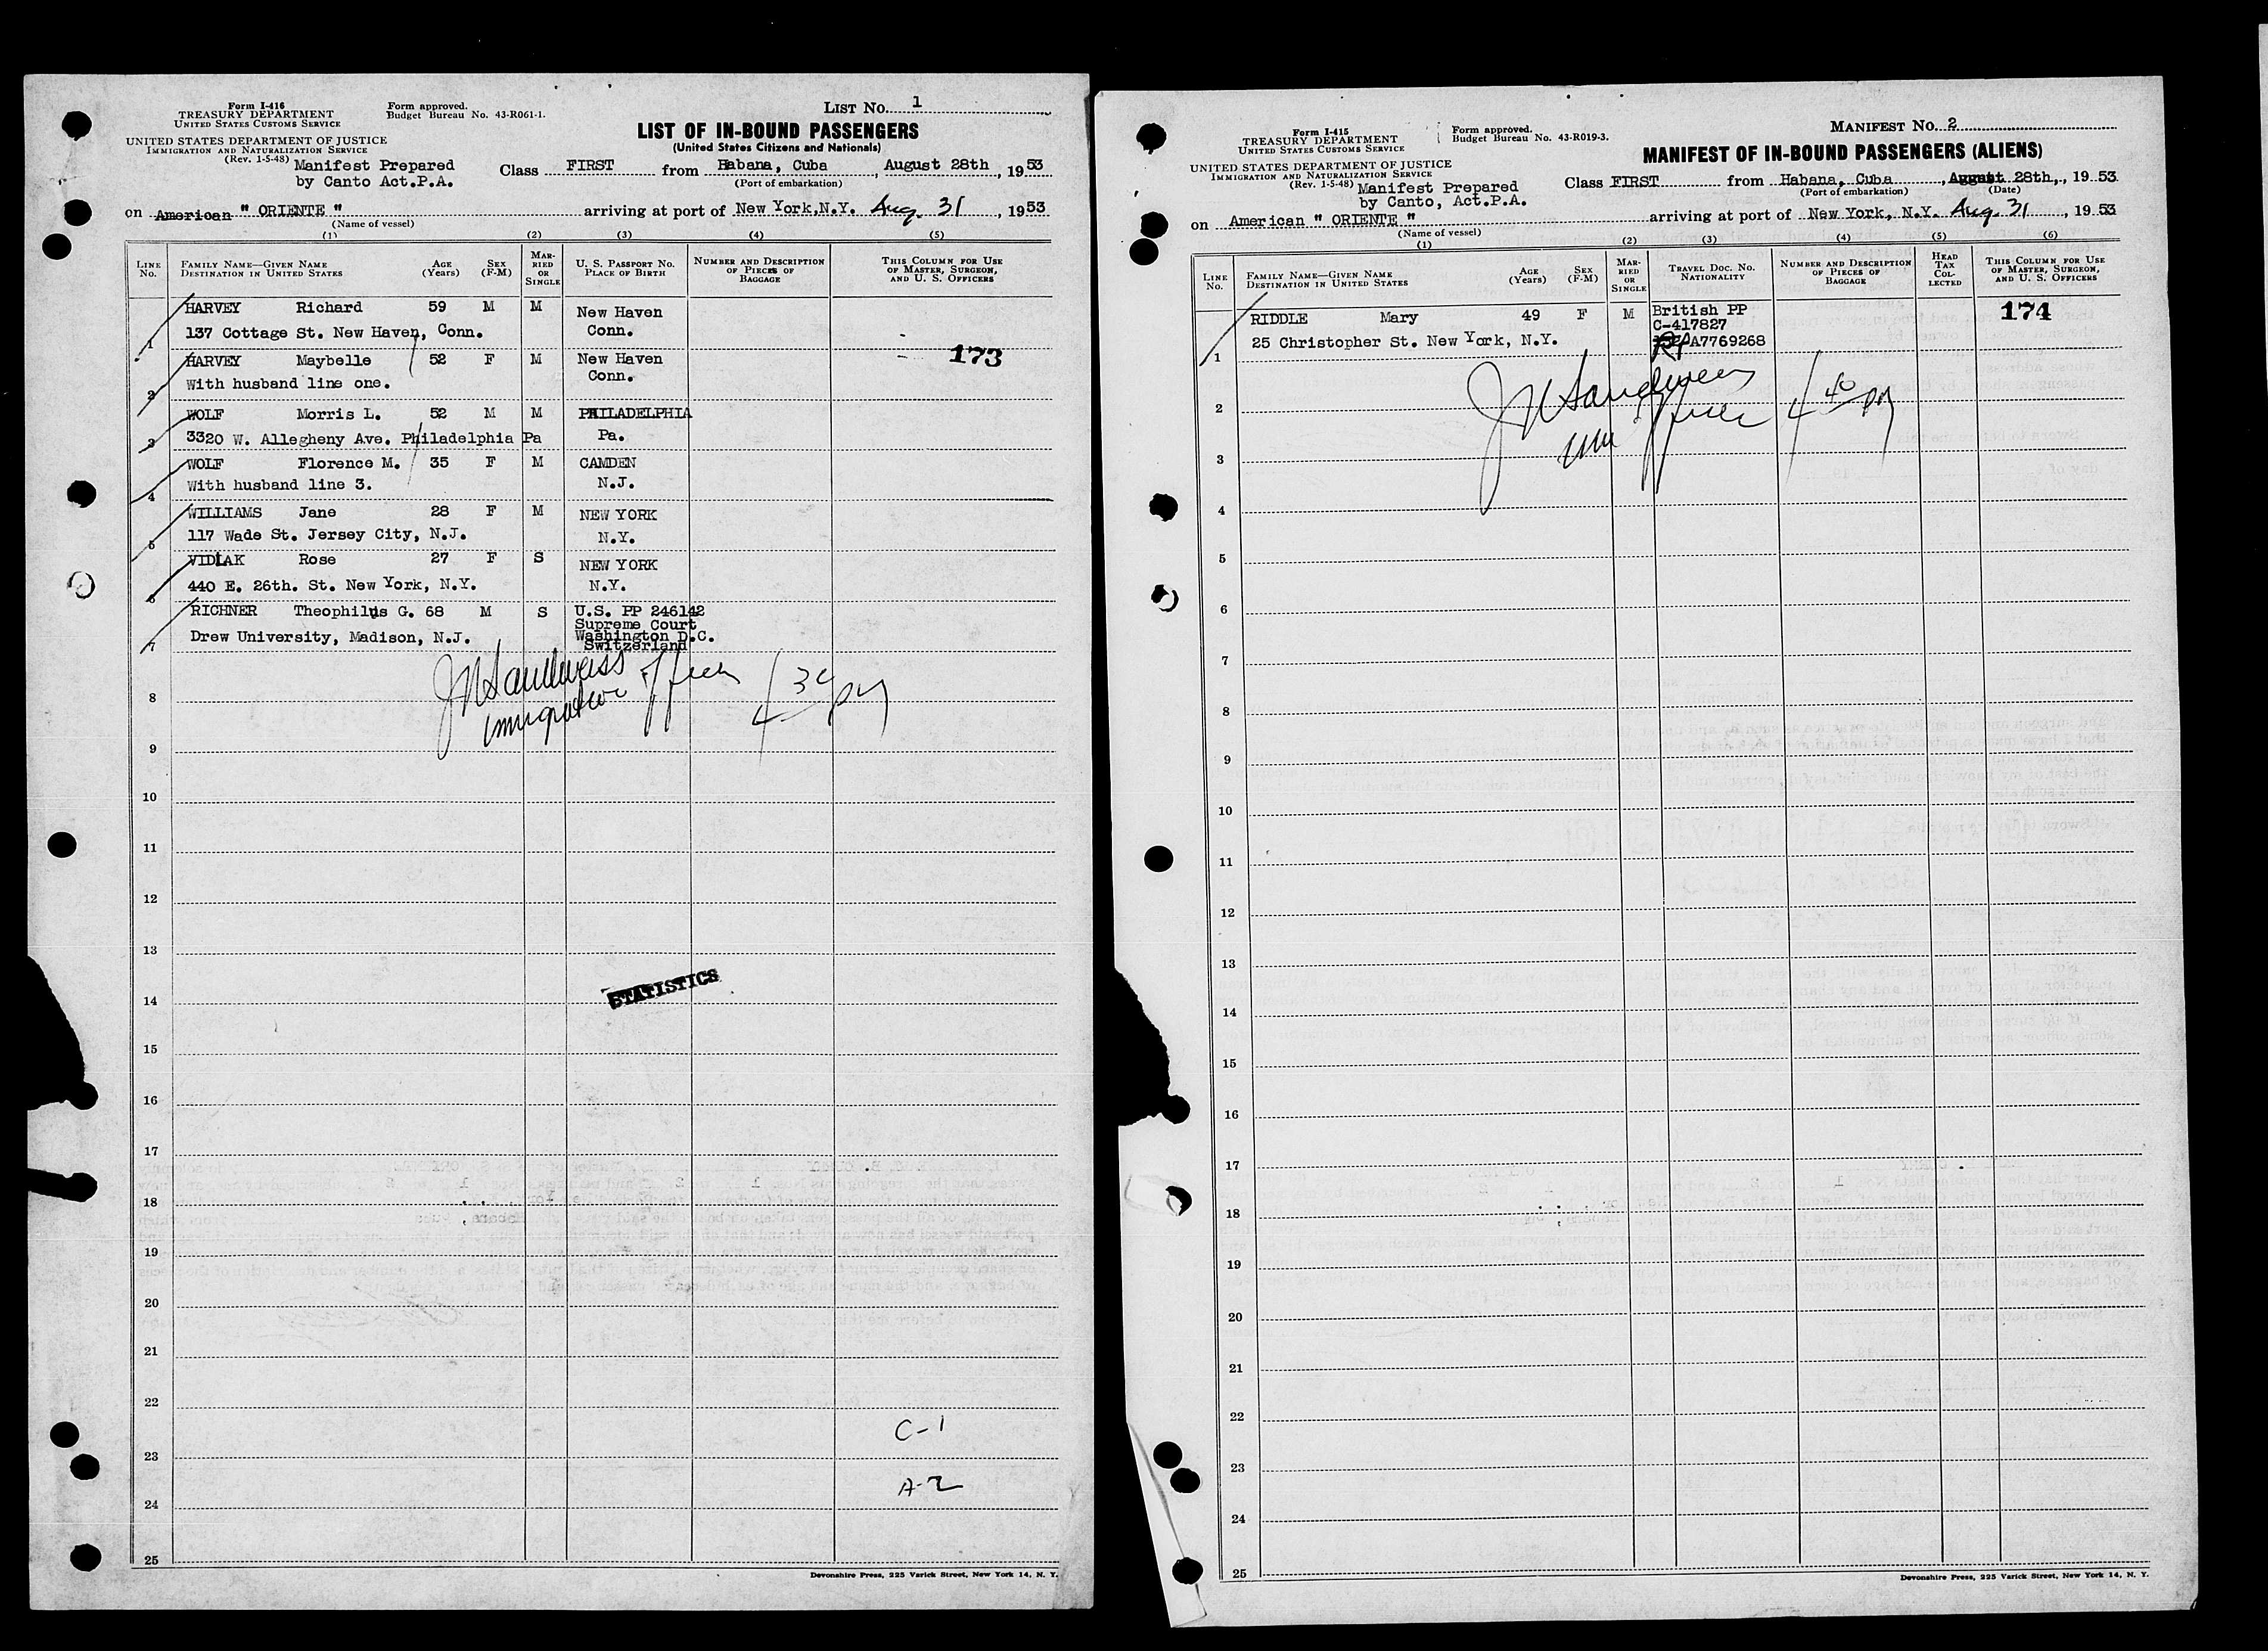 Form I-416
TREASURY DEPARTMENT
UNITED STATES CUSTOMS SERVICE
Form approved.
Budget Bureau No. 43-R061-1.
LIST NO. 1
UNITED STATES DEPARTMENT OF JUSTICE
IMMIGRATION AND NATURALIZATION SERVICE
(Rev. 1-5-48)
LIST OF IN-BOUND PASSENGERS
(United States Citizens and Nationals)
Manifest Prepared
by Canto Act.P.A.
Class FIRST from Habana, Cuba, August 28th, 1953
(Port of embarkation)
on American " ORIENTE " arriving at port of New York,N.Y. Aug. 31, 1953
(Name of vessel)
(1) (2) (3) (4) (5)
LINE No.
FAMILY NAME—GIVEN NAME
DESTINATION IN UNITED STATES
AGE (Years)
SEX (F-M)
MARRIED OR SINGLE
U. S. PASSPORT NO.
PLACE OF BIRTH
NUMBER AND DESCRIPTION OF PIECES OF BAGGAGE
THIS COLUMN FOR USE OF MASTER, SURGEON, AND U. S. OFFICERS
HARVEY Richard 59 M M New Haven
1 137 Cottage St. New Haven, Conn. Conn.
HARVEY Maybelle 52 F M New Haven 173
2 With husband line one. Conn.
WOLF Morris L. 52 M M PHILADELPHIA
3 3320 W. Allegheny Ave. Philadelphia Pa Pa.
WOLF Florence M. 35 F M CAMDEN
4 With husband line 3. N.J.
WILLIAMS Jane 28 F M NEW YORK
5 117 Wade St. Jersey City, N.J. N.Y.
VIDLAK Rose 27 F S NEW YORK
6 440 E. 26th. St. New York, N.Y. N.Y.
RICHNER Theophilus G. 68 M S U.S. PP 246142
Supreme Court
7 Drew University, Madison, N.J. Washington D.C.
Switzerland
Immigration Officer 4 30 PM
8
9
10
11
12
13
14
STATISTICS
15
16
17
18
19
20
21
22
C-1
23
A-2
24
25
Devonshire Press, 225 Varick Street, New York 14, N. Y.
Form I-415
TREASURY DEPARTMENT
UNITED STATES CUSTOMS SERVICE
Form approved.
Budget Bureau No. 43-R019-3.
MANIFEST NO. 2
UNITED STATES DEPARTMENT OF JUSTICE
IMMIGRATION AND NATURALIZATION SERVICE
(Rev. 1-5-48)
MANIFEST OF IN-BOUND PASSENGERS (ALIENS)
Manifest Prepared
by Canto, Act.P.A.
Class FIRST from Habana, Cuba, August 28th, , 1953
(Port of embarkation) (Date)
on American " ORIENTE " arriving at port of New York, N.Y. Aug. 31, 1953
(Name of vessel)
(1) (2) (3) (4) (5) (6)
LINE No.
FAMILY NAME—GIVEN NAME
DESTINATION IN UNITED STATES
AGE (Years)
SEX (F-M)
MARRIED OR SINGLE
TRAVEL DOC. NO.
NATIONALITY
NUMBER AND DESCRIPTION OF PIECES OF BAGGAGE
HEAD TAX COLLECTED
THIS COLUMN FOR USE OF MASTER, SURGEON, AND U. S. OFFICERS
RIDDLE Mary 49 F M British PP 174
C-417827
1 25 Christopher St. New York, N.Y. A7769268
Imm Officer 4 40 PM
2
3
4
5
6
7
8
9
10
11
12
13
14
15
16
17
18
19
20
21
22
23
24
25
Devonshire Press, 225 Varick Street, New York 14, N. Y.